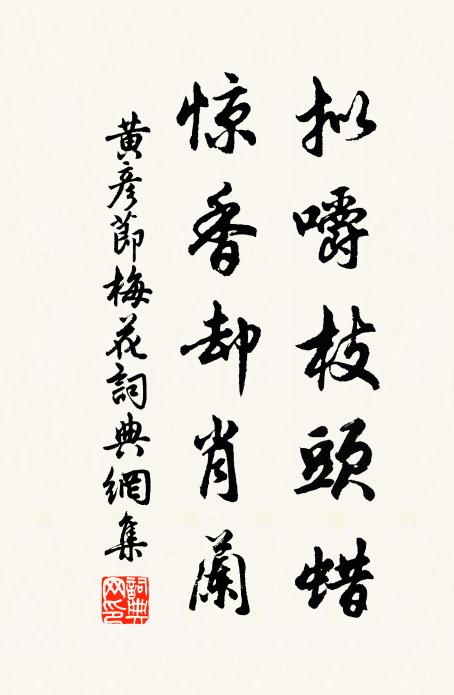 拟嚼枝頭蜡
惊香却肖蘭
黄彦節梅花詞典網集
詞典网印